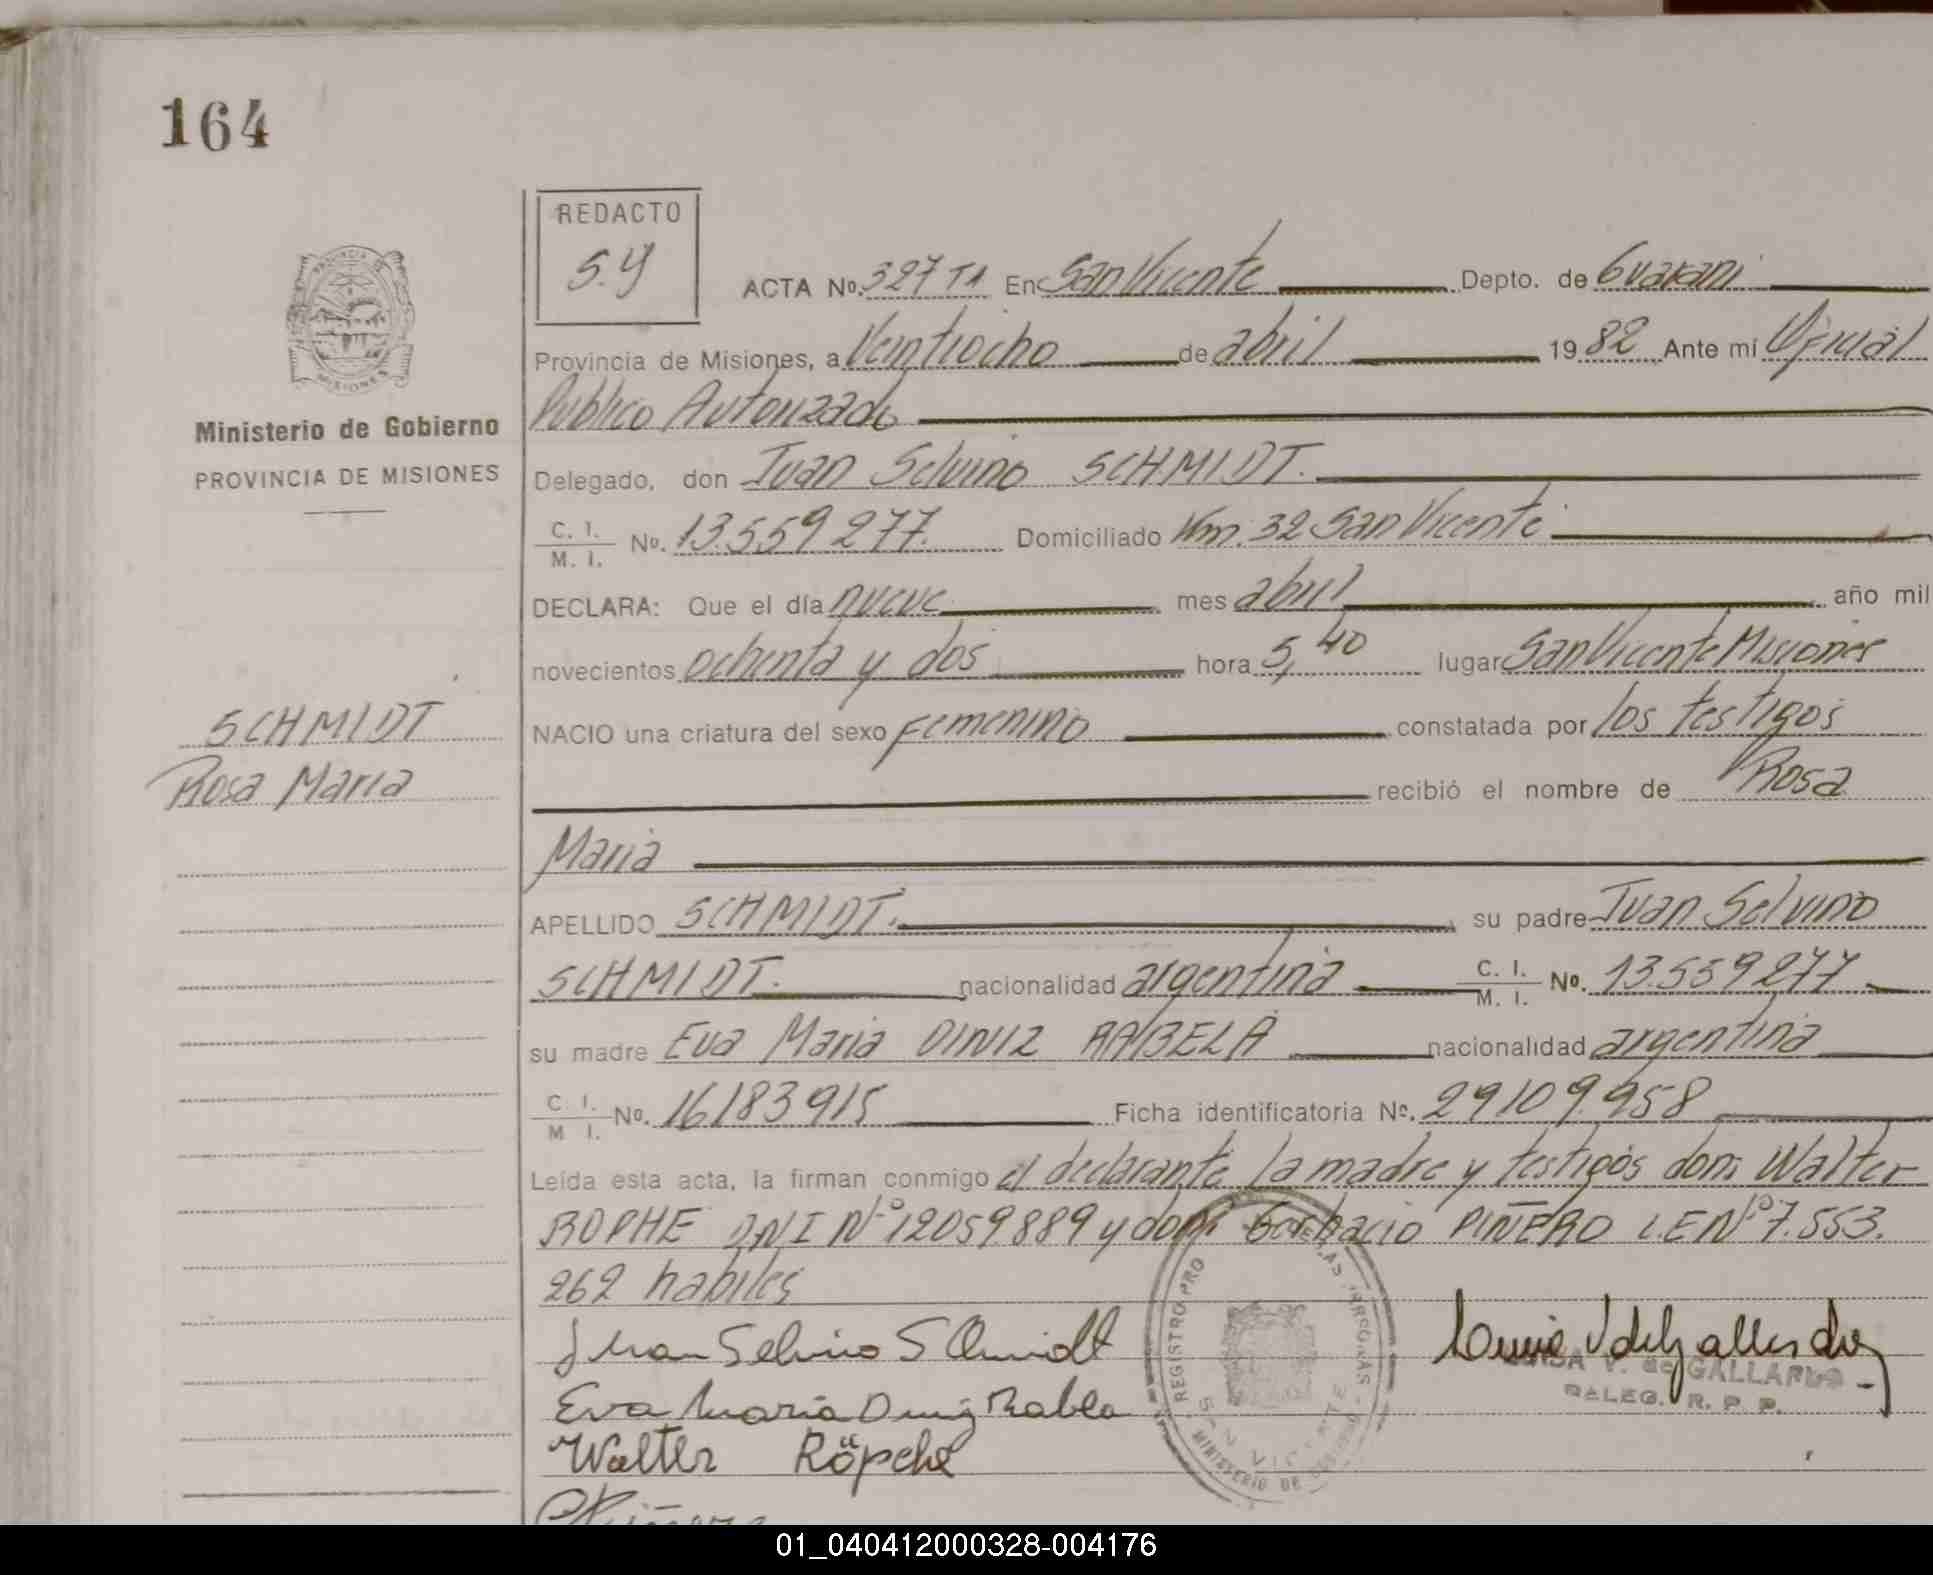 164
REDACTO
S.Y
ACTA No. 327 TA En San Vicente Depto. de Guarani
Provincia de Misiones, a Veintiocho de abril 1982 Ante mí Oficial
Publico Autorizado
Ministerio de Gobierno
PROVINCIA DE MISIONES
Delegado, don Juan Selvino SCHMIDT.
C. I.
M. I. No. 13.559 277. Domiciliado Km. 32 San Vicente
DECLARA: Que el día nueve mes abril año mil
novecientos ochenta y dos hora 5,40 lugar San Vicente Misiones
SCHMIDT
Rosa Maria
NACIO una criatura del sexo femenino constatada por los testigos
recibió el nombre de Rosa
Maria
APELLIDO SCHMIDT. su padre Juan Selvino
SCHMIDT. nacionalidad argentina C. I.
M. I. No. 13.559277
su madre Eva Maria DINIZ RABELA nacionalidad argentina
C. I.
M. I. No. 16183915 Ficha identificatoria No. 29109.958
Leída esta acta, la firman conmigo el declarante la madre y testigos don: Walter
ROPHE DNI Nº 12059889 y don: PIÑERO L.E Nº 7.553.
262 habiles
Juan Selvino Schmidt
Eva Maria Diniz Rabela
Walter Röpche
Piñero
REGISTRO PRO DE LAS PERSONAS
SAN VICENTE
MINISTERIO DE GOBIERNO
V. de GALLARDO
DELEG. R. P. P.
01_040412000328-004176